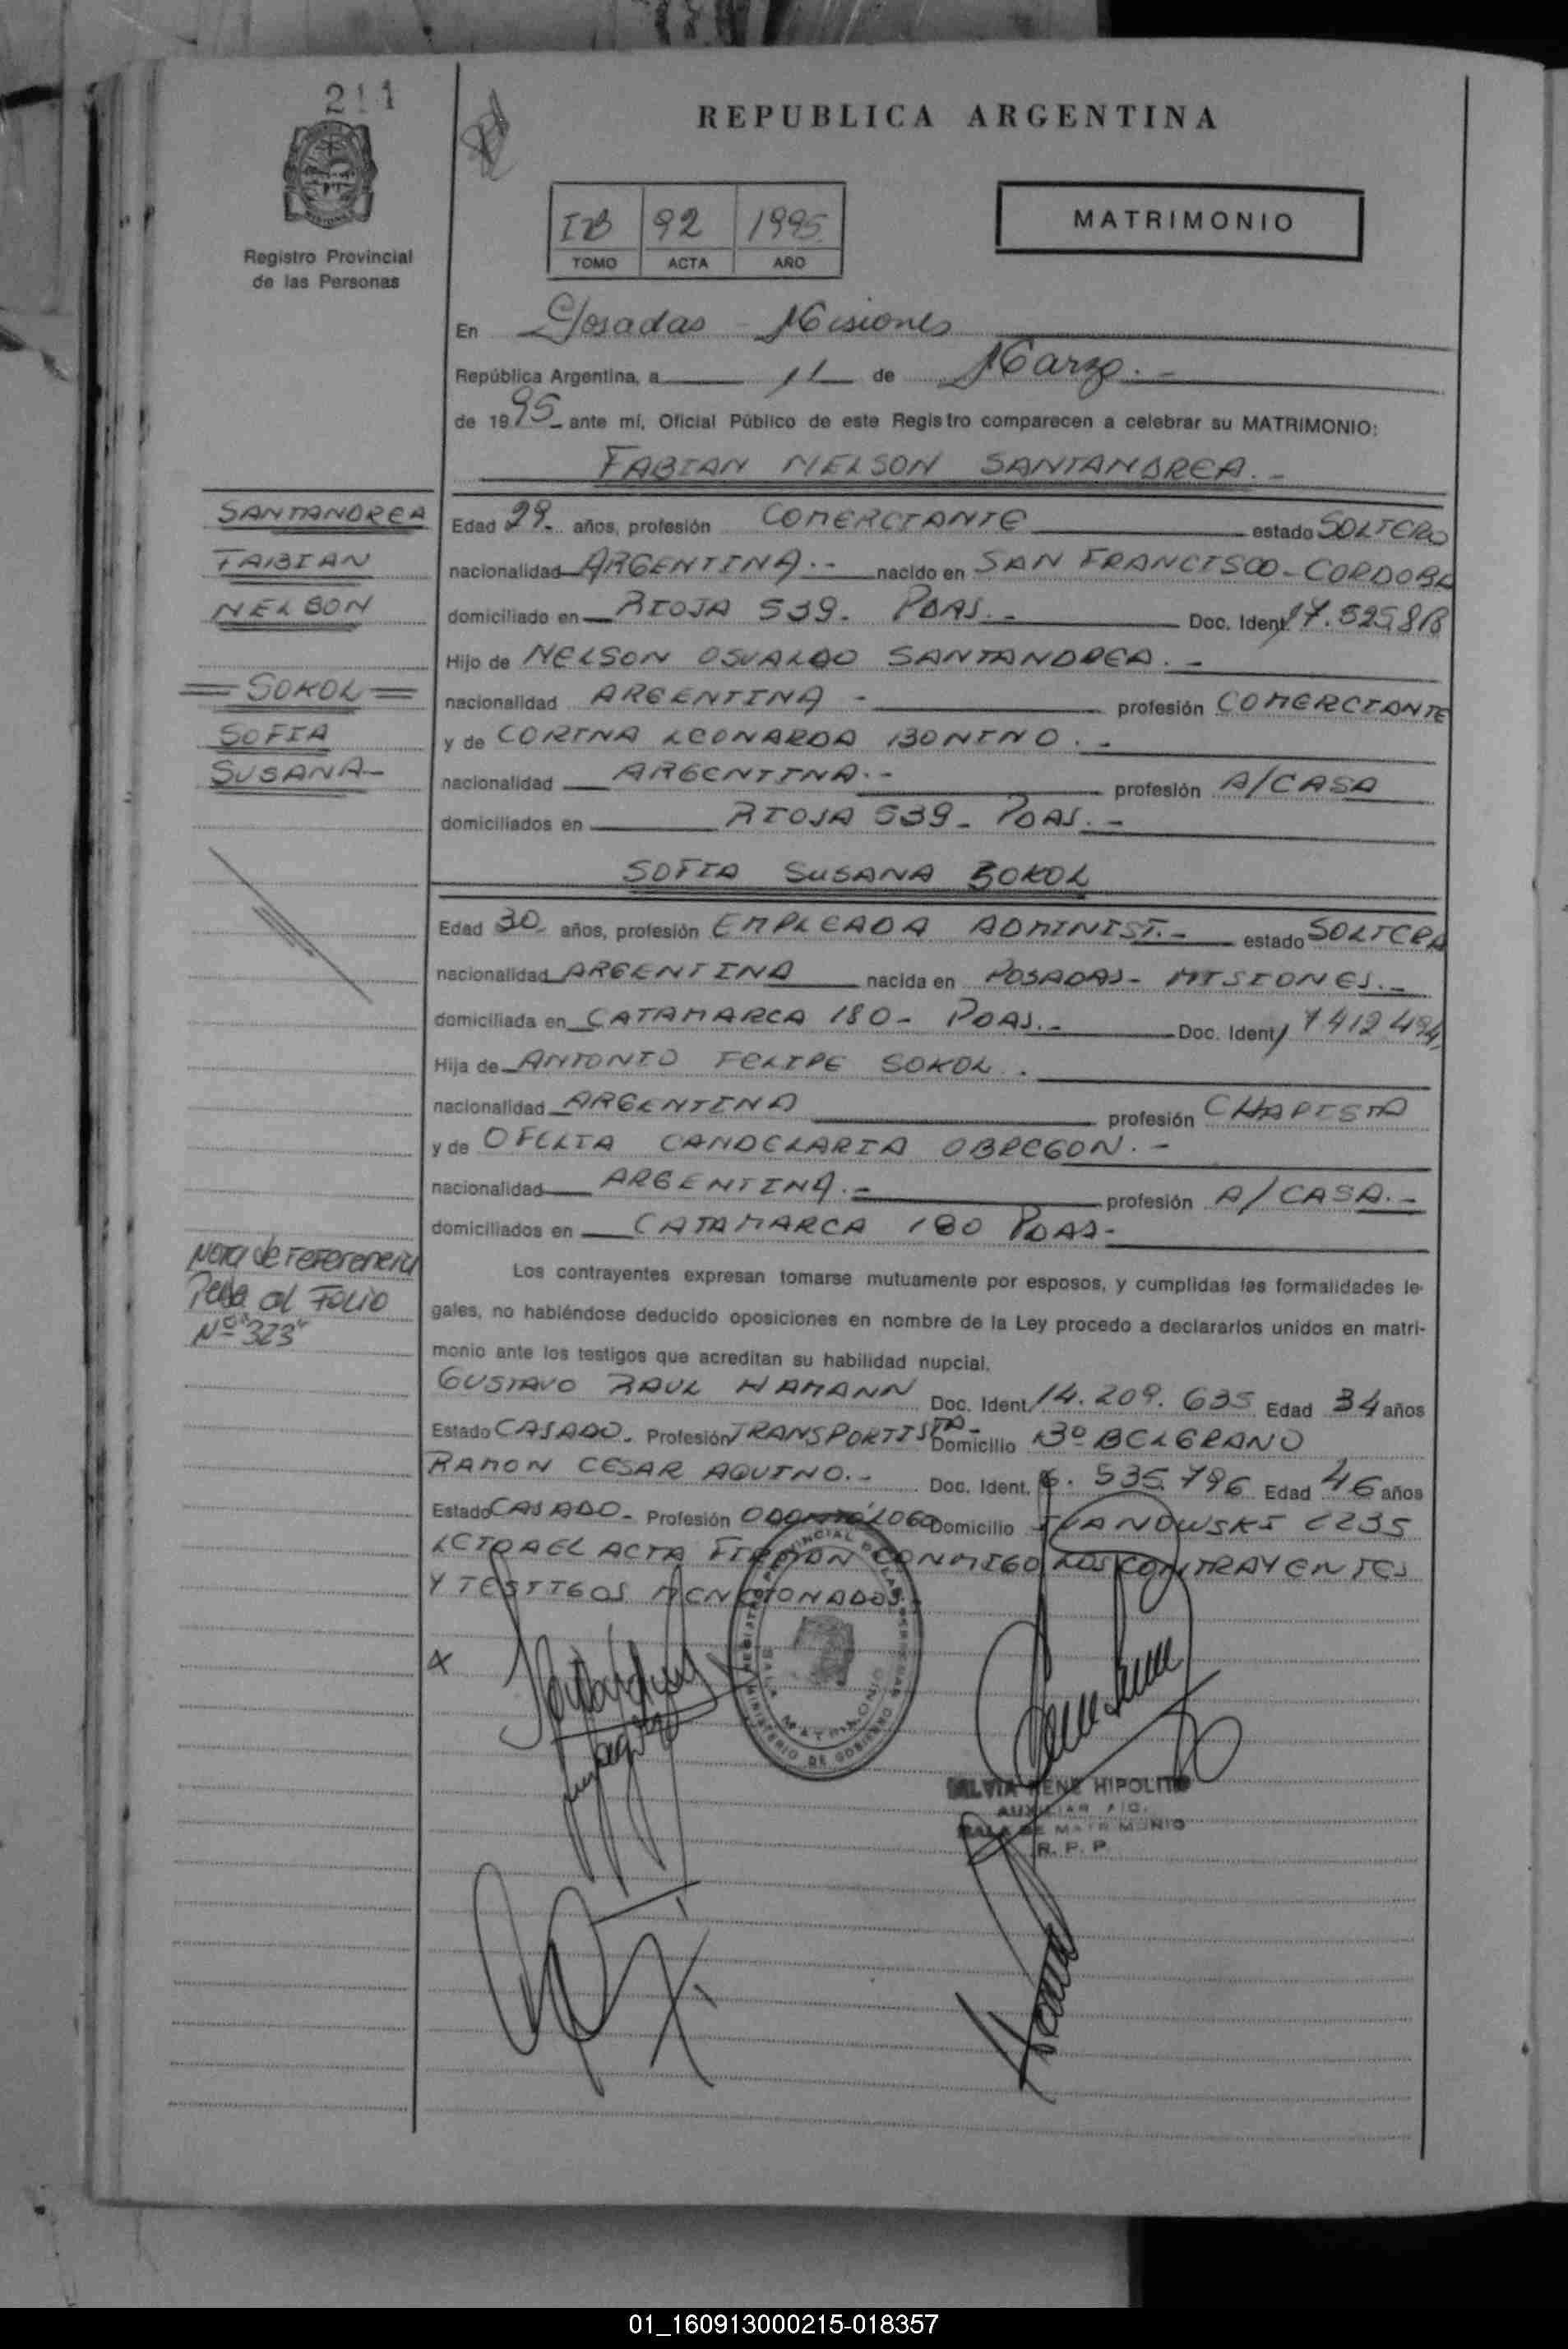 211
REPUBLICA ARGENTINA
MATRIMONIO
Registro Provincial
de las Personas
92 1995
TOMO ACTA AÑO
En Posadas - Misiones
República Argentina, a 11 de Marzo.-
de 1995 ante mí, Oficial Público de este Registro comparecen a celebrar su MATRIMONIO:
FABIAN NELSON SANTANDREA.-
SANTANDREA
FABIAN
NELSON
SOKOL
SOFIA
SUSANA-
Edad 29. años, profesión COMERCIANTE estado SOLTERO
nacionalidad ARGENTINA.- nacido en SAN FRANCISCO-CORDOBA
domiciliado en RIOJA 539. PDAS.- Doc. Ident.
Hijo de NELSON OSVALDO SANTANDREA.-
nacionalidad ARGENTINA - profesión COMERCIANTE
y de CORINA LEONARDA BONINO.-
nacionalidad ARGENTINA.- profesión A/CASA
domiciliados en RIOJA 539- PDAS.-
SOFIA SUSANA SOKOL
Edad 30 años, profesión EMPLEADA ADMINIST.- estado SOLTERA
nacionalidad ARGENTINA nacida en POSADAS- MISIONES.-
domiciliada en CATAMARCA 180- PDAS.- Doc. Ident. 17412494
Hija de ANTONIO FELIPE SOKOL.
nacionalidad ARGENTINA profesión CHAPISTA
y de OFELIA CANDELARIA OBREGON.-
nacionalidad ARGENTINA.- profesión A/CASA.-
domiciliados en CATAMARCA 180 PDAS-
Nota de referencia
Pasa al FOLIO
Nº 323
Los contrayentes expresan tomarse mutuamente por esposos, y cumplidas las formalidades le-
gales, no habiéndose deducido oposiciones en nombre de la Ley procedo a declararlos unidos en matri-
monio ante los testigos que acreditan su habilidad nupcial.
GUSTAVO RAUL HAMANN Doc. Ident. 14.209.635 Edad 34 años
Estado CASADO. Profesión TRANSPORTISTA- Domicilio Bº BELGRANO
RAMON CESAR AQUINO.- Doc. Ident. 535.796 Edad 46 años
Estado CASADO- Profesión ODONTÓLOGO Domicilio 2235
LEIDA EL ACTA FIRMAN CONMIGO LOS CONTRAYENTES
Y TESTIGOS MENCIONADOS.
REGISTRO PROVINCIAL DE LAS PERSONAS
SALA MATRIMONIO
MINISTERIO DE GOBIERNO
SILVIA RENE HIPOLITO
AUXILIAR A/C.
SALA DE MATRIMONIO
R. P. P.
01_160913000215-018357